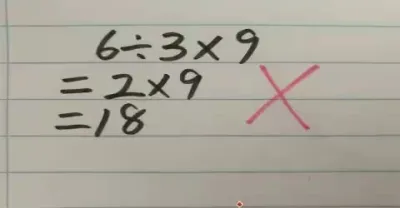 6÷3×9
=2×9
=18